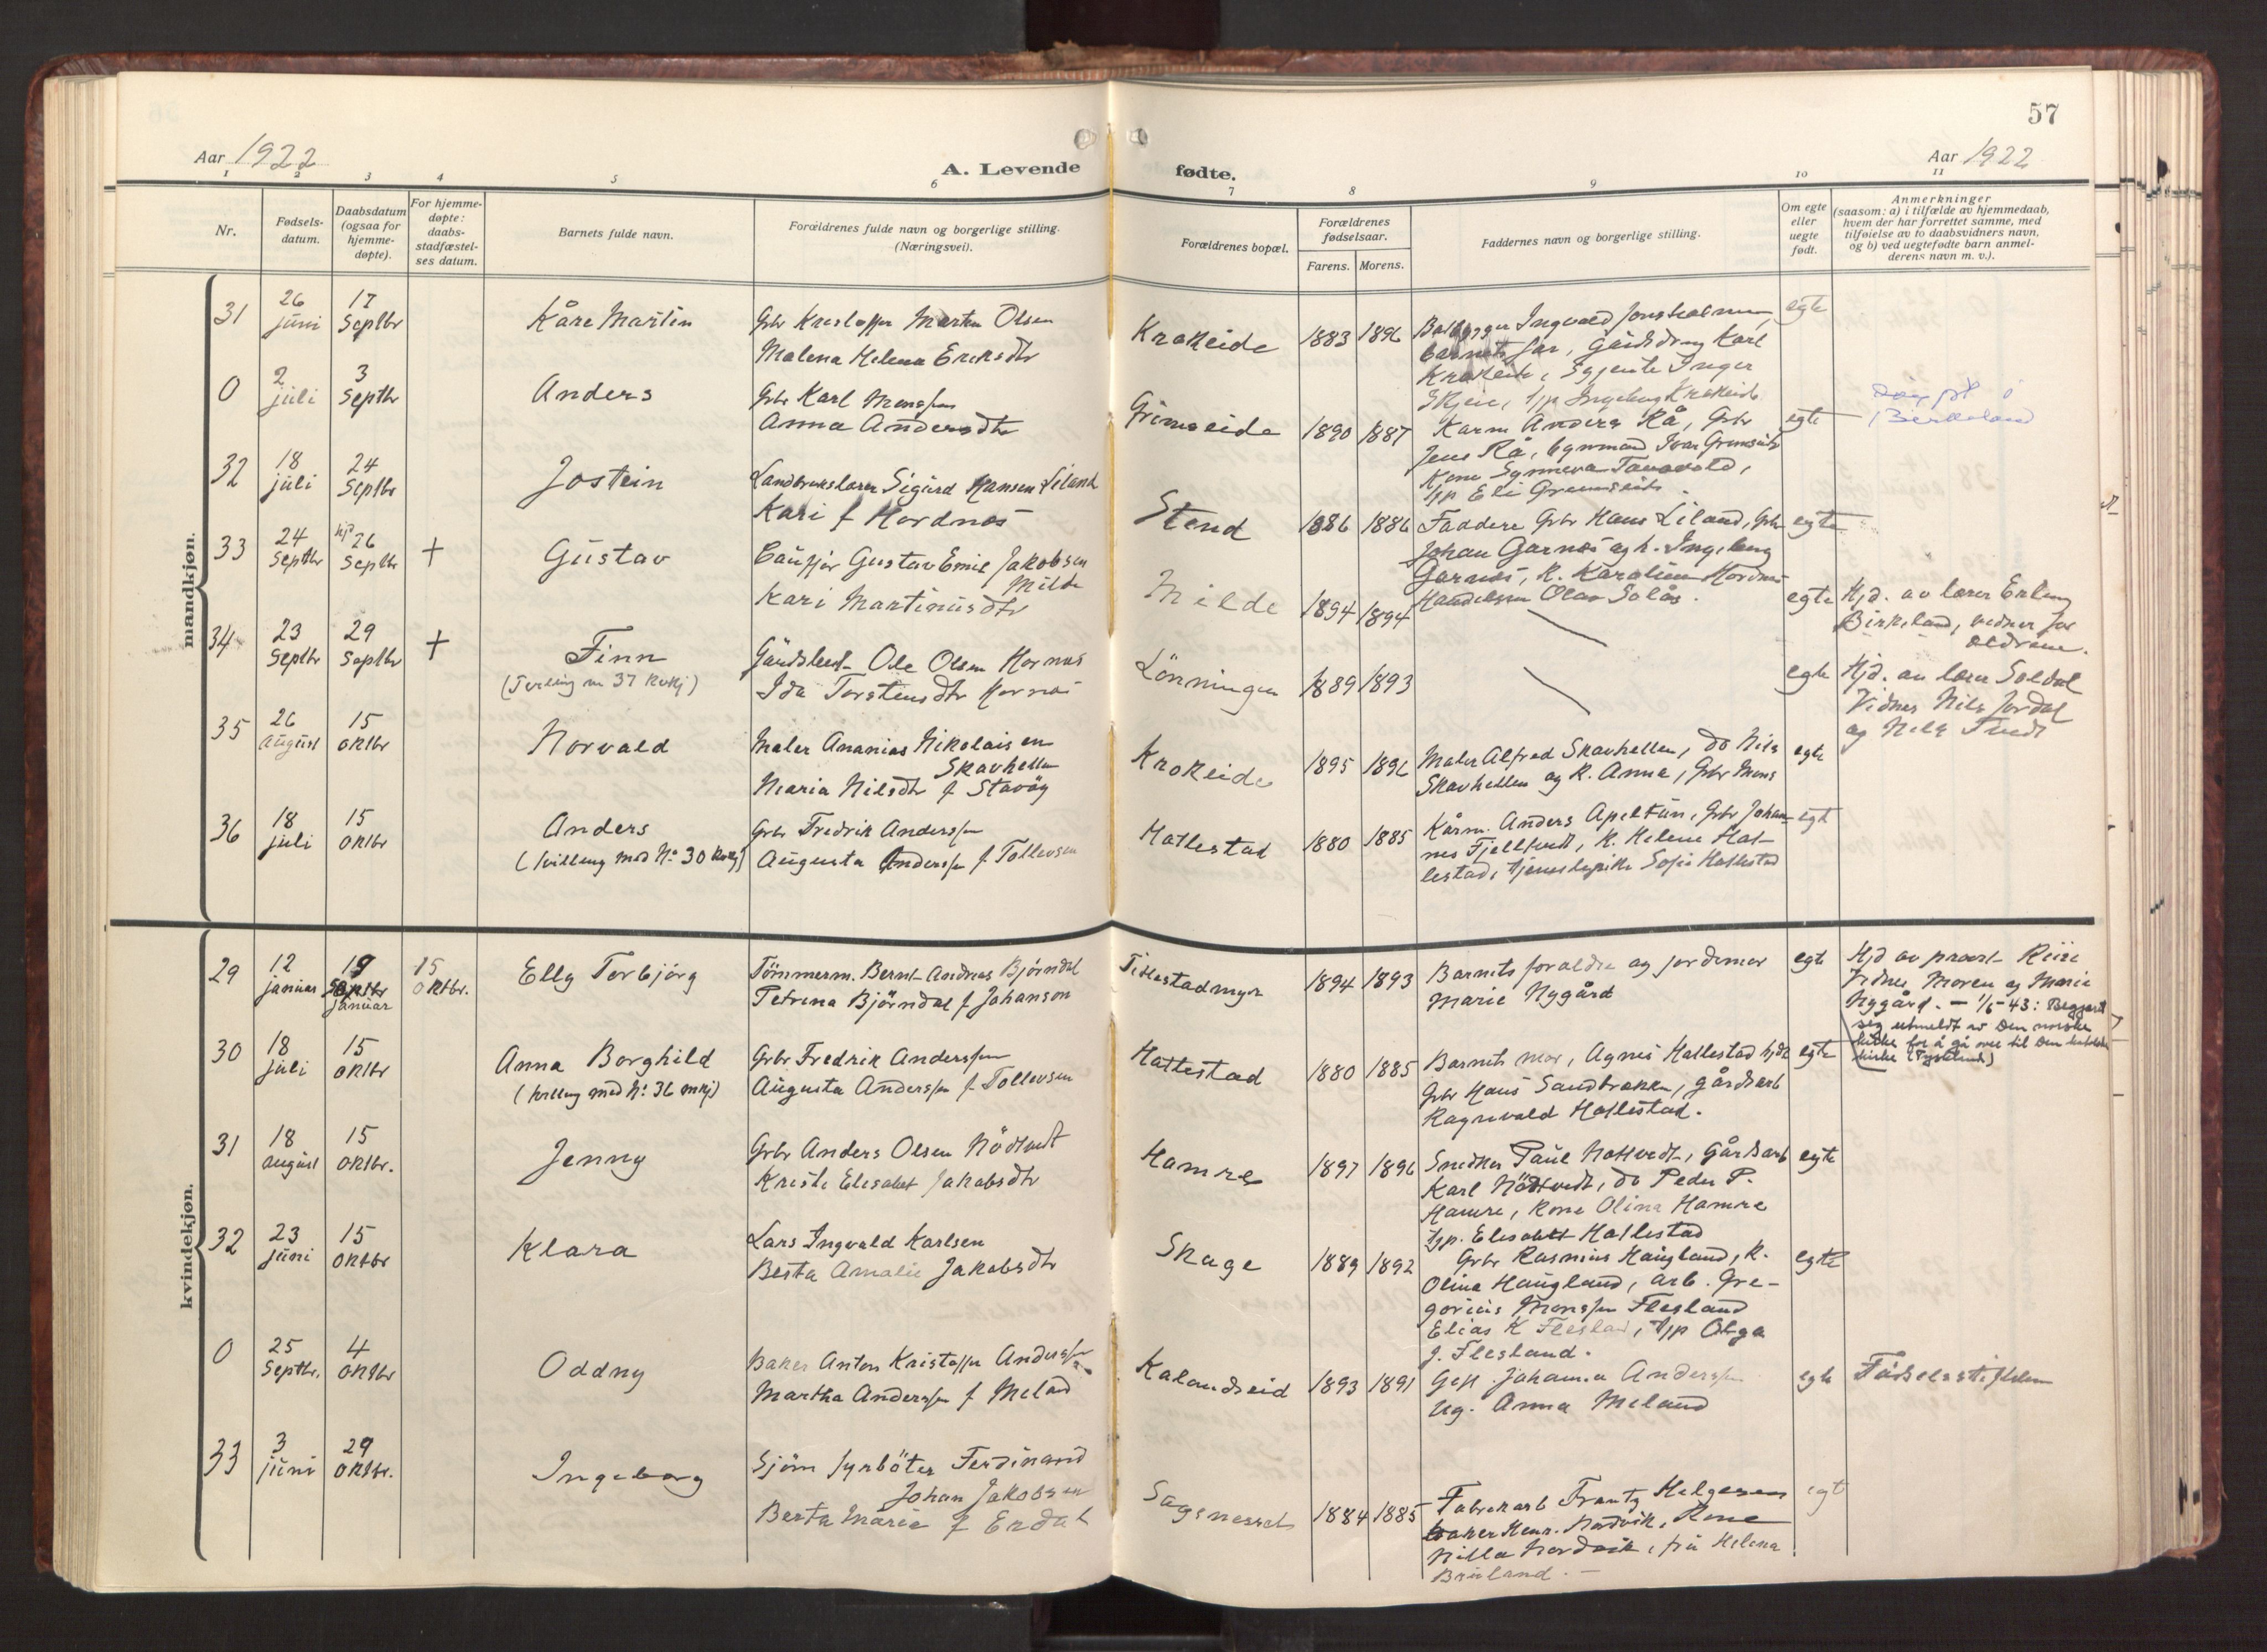 57
Aar 1922
A. Levende
fødte.
Aar 1922
1 2 3 4 5 6 7 8 9 10 11
Nr.
Fødsels-
datum.
Daabsdatum
(ogsaa for
hjemme-
døpte).
For hjemme-
døpte:
daabs-
stadfæstel-
ses datum.
Barnets fulde navn.
Forældrenes fulde navn og borgerlige stilling.
(Næringsvei).
Forældrenes bopæl.
Forældrenes
fødselsaar.
Farens. Morens.
Faddernes navn og borgerlige stilling.
Om egte
eller
uegte
født.
Anmerkninger
(saasom: a) i tilfælde av hjemmedaab,
hvem der har forrettet samme, med
tilføielse av to daabsvidners navn,
og b) ved uegtefødte barn anmel-
derens navn m. v.).
mandkjøn.
31
26
juni
17
Septbr
Kåre Martin
Gbr Kristoffer Martin Olsen
Malena Helena Eriksdtr
Krokeide
1883 1896
Ingvald
barnets far, Karl
Krokeide, Inger
Skjeie, Ingeborg Krokeide
egte
0
2
juli
3
Septbr
Anders
Gbr Karl Monssen
Anna Andersdtr
Grimseide
1890 1887
Karm Anders Rå, Gbr
Jens Rå, Ivar Grimseide
Kone Synneva
Eli Grimseide
egte
Døpt i
Birkeland
32
18
juli
24
Septbr
Jostein
Landbrukslærer Sigurd Hansen Liland
Kari f Hordnes
Stend
1886 1886
Faddere Gbr Hans Liland, Gbr
Johan Garnes og h. Ingeborg
Garnes, K. Karoline Hordnes
Olav Solås.
egte
33
24
Septbr
hjd 26
Septbr
+
Gustav
Gustav Emil Jakobsen
Milde
Kari Martinusdtr
Milde
1894 1894
egte
Hjd. av lærer Erling
Birkeland, vidner for
ældrene.
34
23
Septbr
29
Septbr
+
Finn
(Tvilling m 37 kvkj)
Ole Olsen Hornes
Ida Torstensdtr Hornes
Lönningen
1889 1893
egte
Hjd. av lærer Soldal
Vidner Nils Jordal
og Nils
35
26
August
15
Oktbr
Norvald
Maler Ananias Nikolaisen
Skavhellen
Maria Nilsdtr f Stavöy
Krokeide
1895 1896
Maler Alfred Skavhellen, do Nils
Skavhellen og K. Anna, Gbr Mons
egte
36
18
juli
15
Oktbr
Anders
(tvilling med No 30 kvkj)
Gbr Fredrik Anderssen
Augusta Anderssen f Tollevsen
Hatlestad
1880 1885
Kårm. Anders Apeltun, Gbr Johan-
nes Fjelltveit, K. Helene Hat-
lestad, tjenestepike Sofie Hatlestad
egte
kvindekjøn.
29
12
januar
19
Septbr
januar
15
Oktbr.
Elly Torbjörg
Tömmerm. Bernt Andreas Björndal
Petrina Björndal f Johanson
Titlestadmyr
1894 1893
Barnets forældre og jordmor
Marie Nygård
egte
Hjd av prost Riise
Vidner Moren og Marie
Nygård. - 1/5-43: Begjært
seg utmeldt av Den norske
kirke for å gå over til Den katolske
kirke (Tyskland)
30
18
juli
15
Oktbr
Anna Borghild
(tvilling med No: 36 mkj)
Gbr Fredrik Anderssen
Augusta Anderssen f. Tollevsen
Hatlestad
1880 1885
Barnets mor, Agnes Hatlestad
Gbr Hans Sandbrekken, gårdsarb
Ragnvald Hatlestad.
egte
31
18
August
15
Oktbr.
Jenny
Gbr Anders Olsen Nödtvedt
Kristi Elisabet Jakobsdtr
Hamre
1897 1896
Snedker Paul Nottvedt, Gårdsarb
Karl Nödtvedt, do Peder P.
Hamre, Kone Olina Hamre
Tjp. Elisabet Hatlestad
egte
32
23
juni
15
Oktbr
Klara
Lars Ingvald Karlsen
Berta Amalie Jakobsdtr
Skage
1889 1892
Gbr Rasmus Haugland, K.
Olina Haugland, arb. Gre-
gorius Monssen Flesland
Elias K Flesland, Tjp Olga
J. Flesland.
egte
0
25
Septbr.
4
Oktbr
Oddny
Baker Anton Kristoffer Anderssen
Martha Anderssen f Meland
Kalandseid
1893 1891
Gift Johanna Anderssen
Ug. Anna Meland
egte
Födselsstiftelsen
33
3
juni
29
Oktbr.
Ingeborg
Sjöm fyrböter Ferdinand
Johan Jakobsen
Berta Marie f Endal
Sagenesset
1884 1885
Fabrikarb Frantz Helgesen
baker Henr. Nordvik, Kone
Nilla Nordvik, fru Helena
Bruland. -
egte